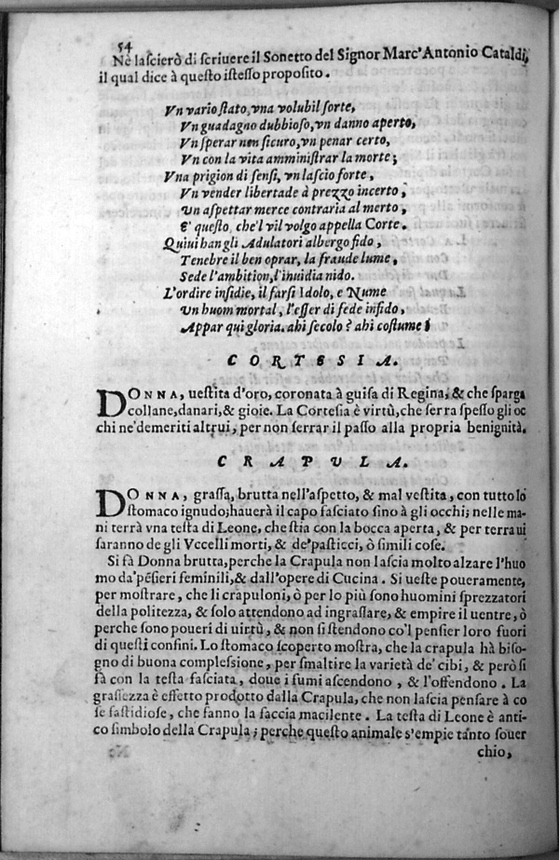 54
Nè lascierò di scriuere il Sonetto del Signor Marc'Antonio Cataldi,
il qual dice à questo istesso proposito.
Vn vario stato, vna volubil sorte,
Vn guadagno dubbioso, vn danno aperto,
Vn sperar non sicuro, vn penar certo,
Vn con la vita amministrar la morte;
Vna prigion di sensi, vn lascio forte,
Vn vender libertade à prezzo incerto,
Vn aspettar merce contraria al merto,
E' questo, che'l vil volgo appella Corte.
Quiui han gli Adulatori albergo fido,
Tenebre il ben oprar, la fraude lume,
Sede l'ambition, l'inuidia nido.
L'ordire insidie, il farsi Idolo, e Nume
Vn huom mortal, l'esser di fede infido,
Appar qui gloria. ahi secolo? ahi costume!
CORTESIA.
DONNA, uestita d'oro, coronata à guisa di Regina, & che sparga
collane, danari, & gioie. La Cortesia è virtù, che serra spesso gli oc
chi ne' demeriti altrui, per non serrar il passo alla propria benignità.
CRAPULA.
DONNA, grassa, brutta nell'aspetto, & mal vestita, con tutto lo
stomaco ignudo; hauerà il capo fasciato sino à gli occhi; nelle ma
ni terrà vna testa di Leone, che stia con la bocca aperta, & per terra ui
saranno de gli Vccelli morti, & de' pasticci, ò simili cose.
Si fà Donna brutta, perche la Crapula non lascia molto alzare l'huo
mo da' pẽsieri feminili, & dall'opere di Cucina. Si ueste poueramente,
per mostrare, che li crapuloni, ò per lo più sono huomini sprezzatori
della politezza, & solo attendono ad ingrassare, & empire il uentre, ò
perche sono poueri di uirtù, & non si stendono co'l pensier loro fuori
di questi confini. Lo stomaco scoperto mostra, che la crapula hà biso-
gno di buona complessione, per smaltire la varietà de' cibi, & però si
fà con la testa fasciata, doue i fumi ascendono, & l'offendono. La
grassezza è effetto prodotto dalla Crapula, che non lascia pensare à co
se fastidiose, che fanno la faccia macilente. La testa di Leone è anti-
co simbolo della Crapula; perche questo animale s'empie tanto souer
chio,